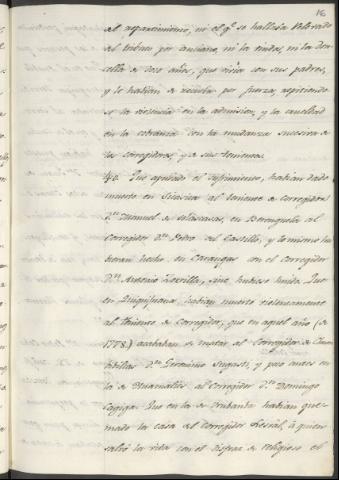 16
al repartimiento, ni el q.e se hallaba relevado
del tributo por anciano, ni la viuda, ni la don-
cella de doce años, que vivia con sus padres,
y lo habian de recibir por fuerza, repitiendo-
se la violencia en la admision, y la crueldad
en la cobranza con la mudanza sucesiva de
los corregidores, y de sus tenientes.
40. Que apurado el sufrimiento, habian dado
muerte en Sicasica al teniente de corregidor
D.n Manuel de en Berenguela al
Corregidor D.n Pedro del Castillo, y lo mismo hu-
bieran hecho en Carangas con el corregidor
D.n Antonio Zorrilla, sino hubiese huido. Que
en Quiquijana habian muerto violentamente
al teniente de Corregidor; que en aquel año (de
1778.) acababan de matar al Corregidor de Chum-
bibilcas D.n Geronimo Sugasti, y poco antes en
la de Huamalies al Corregidor D.n Domingo
Cagiga. Que en la de Urubamba habian que-
mado la casa al Corregidor Leefdal, á quien
salvó la vida con el disfraz de religioso el